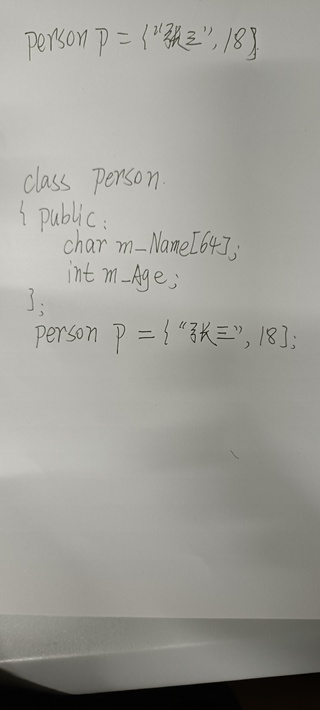 person p = {"张三", 18}
class person
{ public:
char m_Name[64];
int m_Age;
};
person p = {"张三", 18};